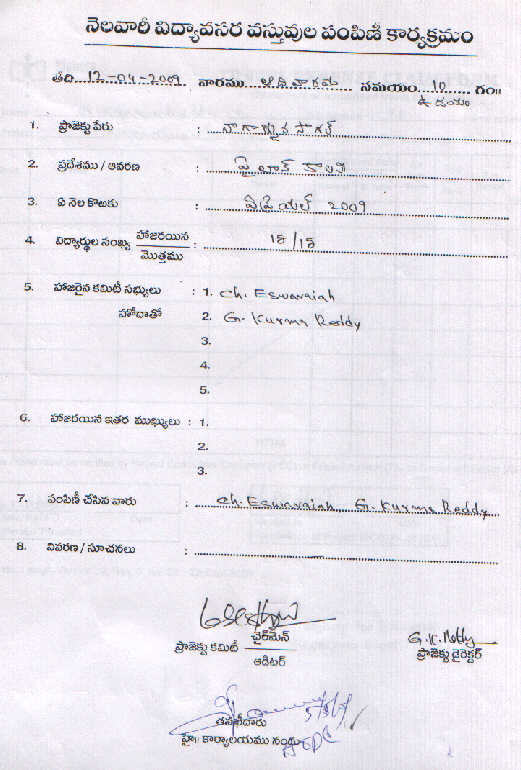 నెలవారీ విద్యావసర వస్తువుల పంపిణీ కార్యక్రమం
తేది 12-04-2009 వారము ఆదివారము సమయం 10 గం॥
ఉదయం
1. ప్రాజెక్టు పేరు : నాగార్జున సాగర్
2. ప్రదేశము / ఆవరణ : పైలాన్ కాలనీ
3. ఏ నెల కొఱకు : ఏప్రియల్ 2009
4. విద్యార్థుల సంఖ్య హాజరయిన / మొత్తము : 18/18
5. హాజరైన కమిటీ సభ్యులు : 1. Ch. Eswaraiah
హోదాతో 2. G. Kurma Reddy
3.
4.
5.
6. హాజరయిన ఇతర ముఖ్యులు : 1.
2.
3.
7. పంపిణీ చేసిన వారు : Ch. Eswaraiah G. Kurma Reddy
8. వివరణ / సూచనలు :
ప్రాజెక్టు కమిటీ ఛైర్‌మెన్ / ఆడిటర్
G.K. Reddy
ప్రాజెక్టు డైరెక్టర్
తనిఖీదారు
హై॥ కార్యాలయము సంస్థ